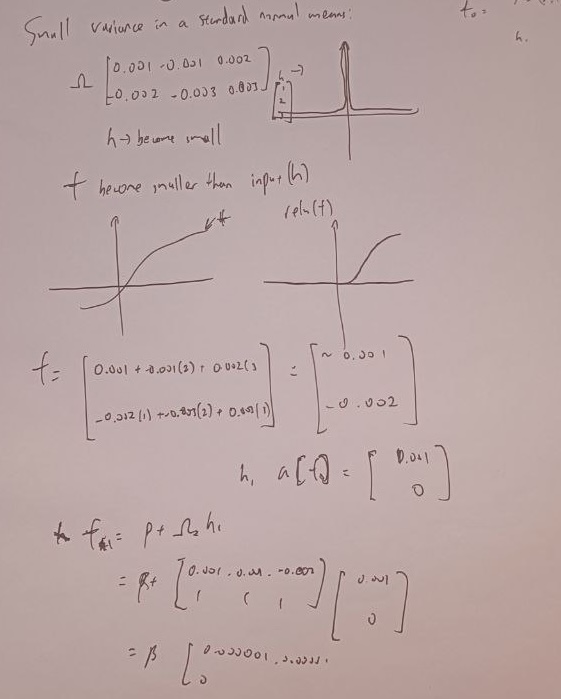 Small variance in a standard normal means:
t₀ =
h.
Ω [0.001 -0.001 0.002
-0.002 -0.003 0.003] [h →
1
2
h → become small
f become smaller than input (h)
f
relu(f)
f = [0.001 + -0.001(2) + 0.002(
-0.002(1) + -0.003(2) + 0.003( )] = [~ 0.001
-0.002]
h₁ a[f₀] = [0.001
0]
f = β + Ω₂ h₁
= β + [0.001 -0.002
1 1 1] [0.001
0]
= β [0.000001
0